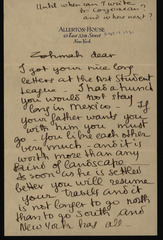 Until when can I write
to Coyoacan?
and where next?
ALLERTON HOUSE
New York
Zohmah dear
I got your nice long
letters at the first Student
League. I had a hunch
you would not stay
long in Mexico. If
your father wants you
with him you must
go. You like each other
very much - and it is
worth more than any
kind of landscape
As soon as he is settled
better you will resume
your travels and it
is not longer to go north
than to go South and
New York has all-